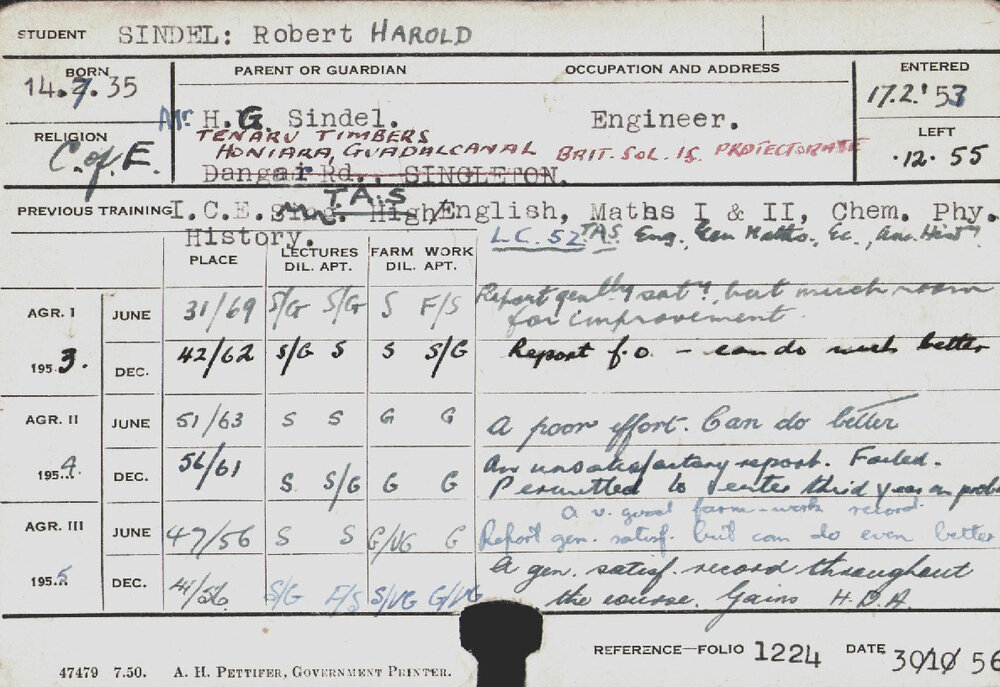 STUDENT SINDEL: Robert HAROLD
BORN PARENT OR GUARDIAN OCCUPATION AND ADDRESS ENTERED
14.7.35 17.2.'53
Mr H.G. Sindel. Engineer.
RELIGION TENARU TIMBERS LEFT
C. of E. HONIARA, GUADALCANAL BRIT. SOL. IS. PROTECTORATE .12.55
Dangar Rd., SINGLETON.
T.A.S
PREVIOUS TRAINING I.C.E. High/English, Maths I & II, Chem. Phy.
History. L.C. 52 TAS Eng., Gen Maths., Ec., Anc. Hist
PLACE LECTURES FARM WORK
DIL. APT. DIL. APT.
AGR. I JUNE 31/69 S/G S/G S F/S Report genlly saty, but much room
for improvement.
1953. DEC. 42/62 S/G S S S/G Report f.o. — can do much better
AGR. II JUNE 51/63 S S G G A poor effort. Can do better
1954. DEC. 56/61 S S/G G G An unsatisfactory report. Failed.
Permitted to enter third year on
a v. good farm-work record.
AGR. III JUNE 47/56 S S G/VG G Report gen. satisf. but can do even better
1955 DEC. 41/56 S/G F/S S/VG G/VG A gen. satisf. record throughout
the course. Gains H.D.A.
REFERENCE—FOLIO 1224 DATE 30/10/56
47479 7.50. A. H. PETTIFER, GOVERNMENT PRINTER.